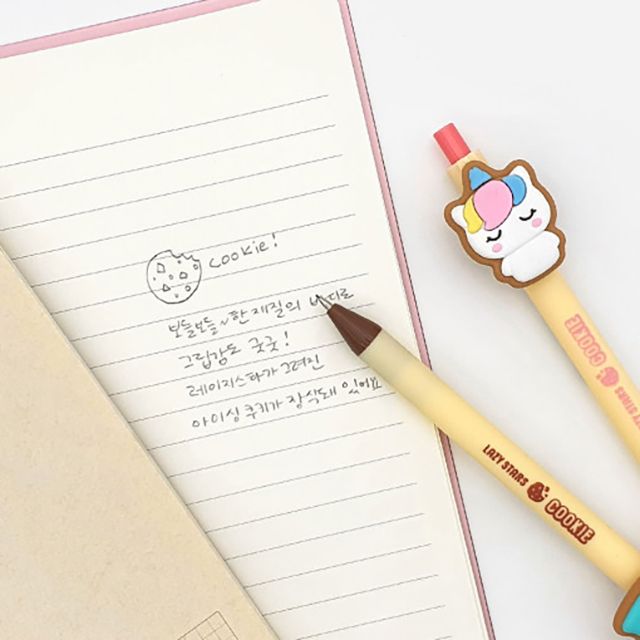 cookie!
보들보들~한 재질의 바디로
그립감도 굿굿!
레이지스타가 그려진
아이싱 쿠키가 장식돼 있어요
LAZY STARS COOKIE
COOKIE